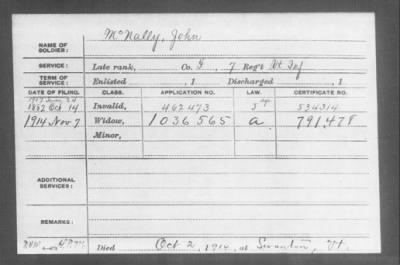 McNally, John
NAME OF SOLDIER:
SERVICE: Late rank, Co. G, 7 Regt Vt Inf
TERM OF SERVICE: Enlisted , 1 Discharged , 1
DATE OF FILING. CLASS. APPLICATION NO. LAW. CERTIFICATE NO.
1882 Oct. 14 Invalid, 462 473 534314
1914 Nov 7 Widow, 1036 565 a 791478
Minor,
ADDITIONAL SERVICES:
REMARKS:
Died Oct 2, 1914, at Swanton, Vt.